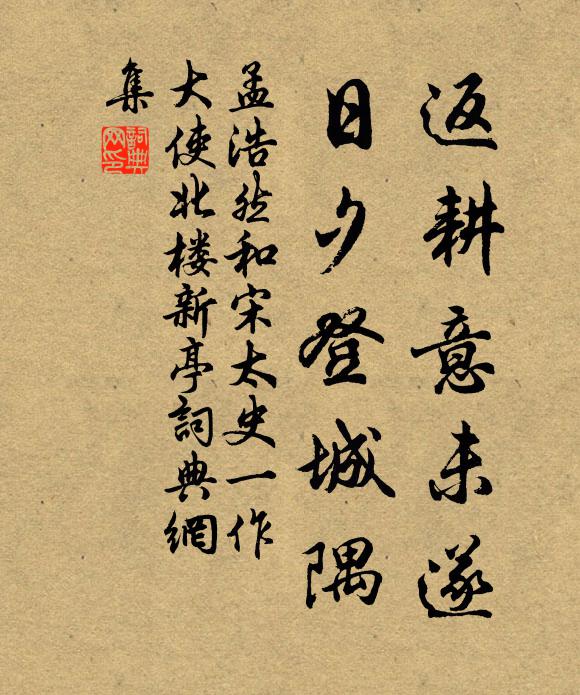 返耕意未遂
日夕登城隅
孟浩然和宋太史一作
大使北楼新亭詞典網
集
詞典网印